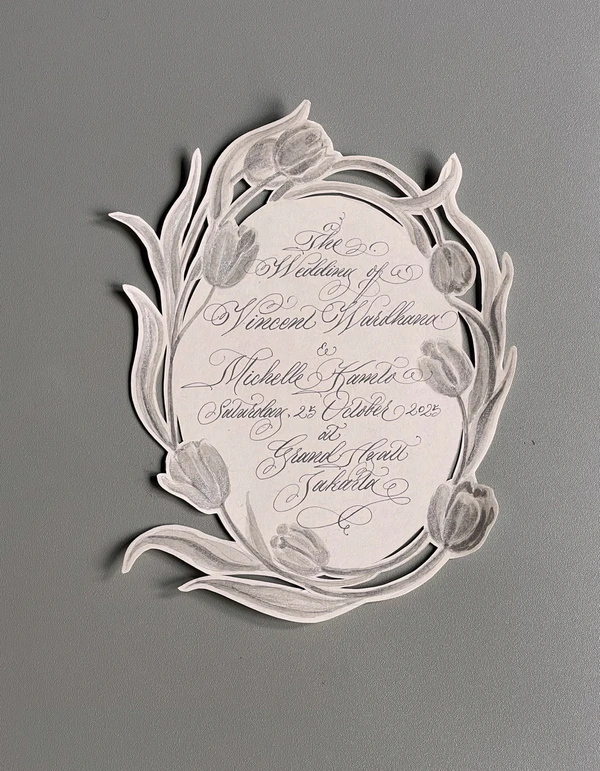 The
Wedding of a
Vincent Wardhana
&
Michelle Kamto
Saturday, 25 October 2025
at
Grand Hyatt
Jakarta